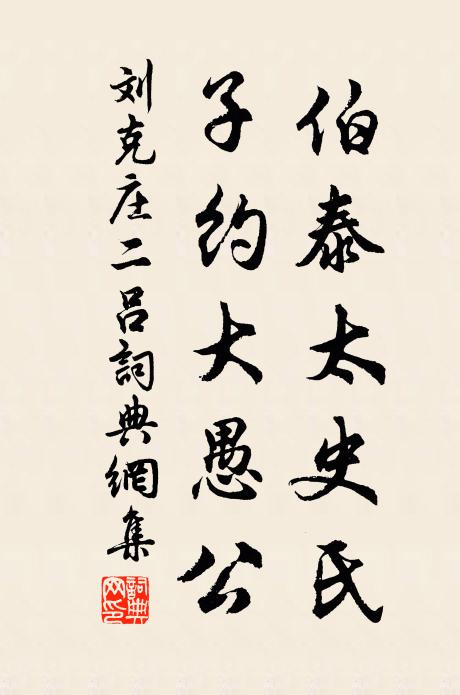 伯泰太史氏
子约大愚公
刘克庄二吕詞典網集
詞典网印